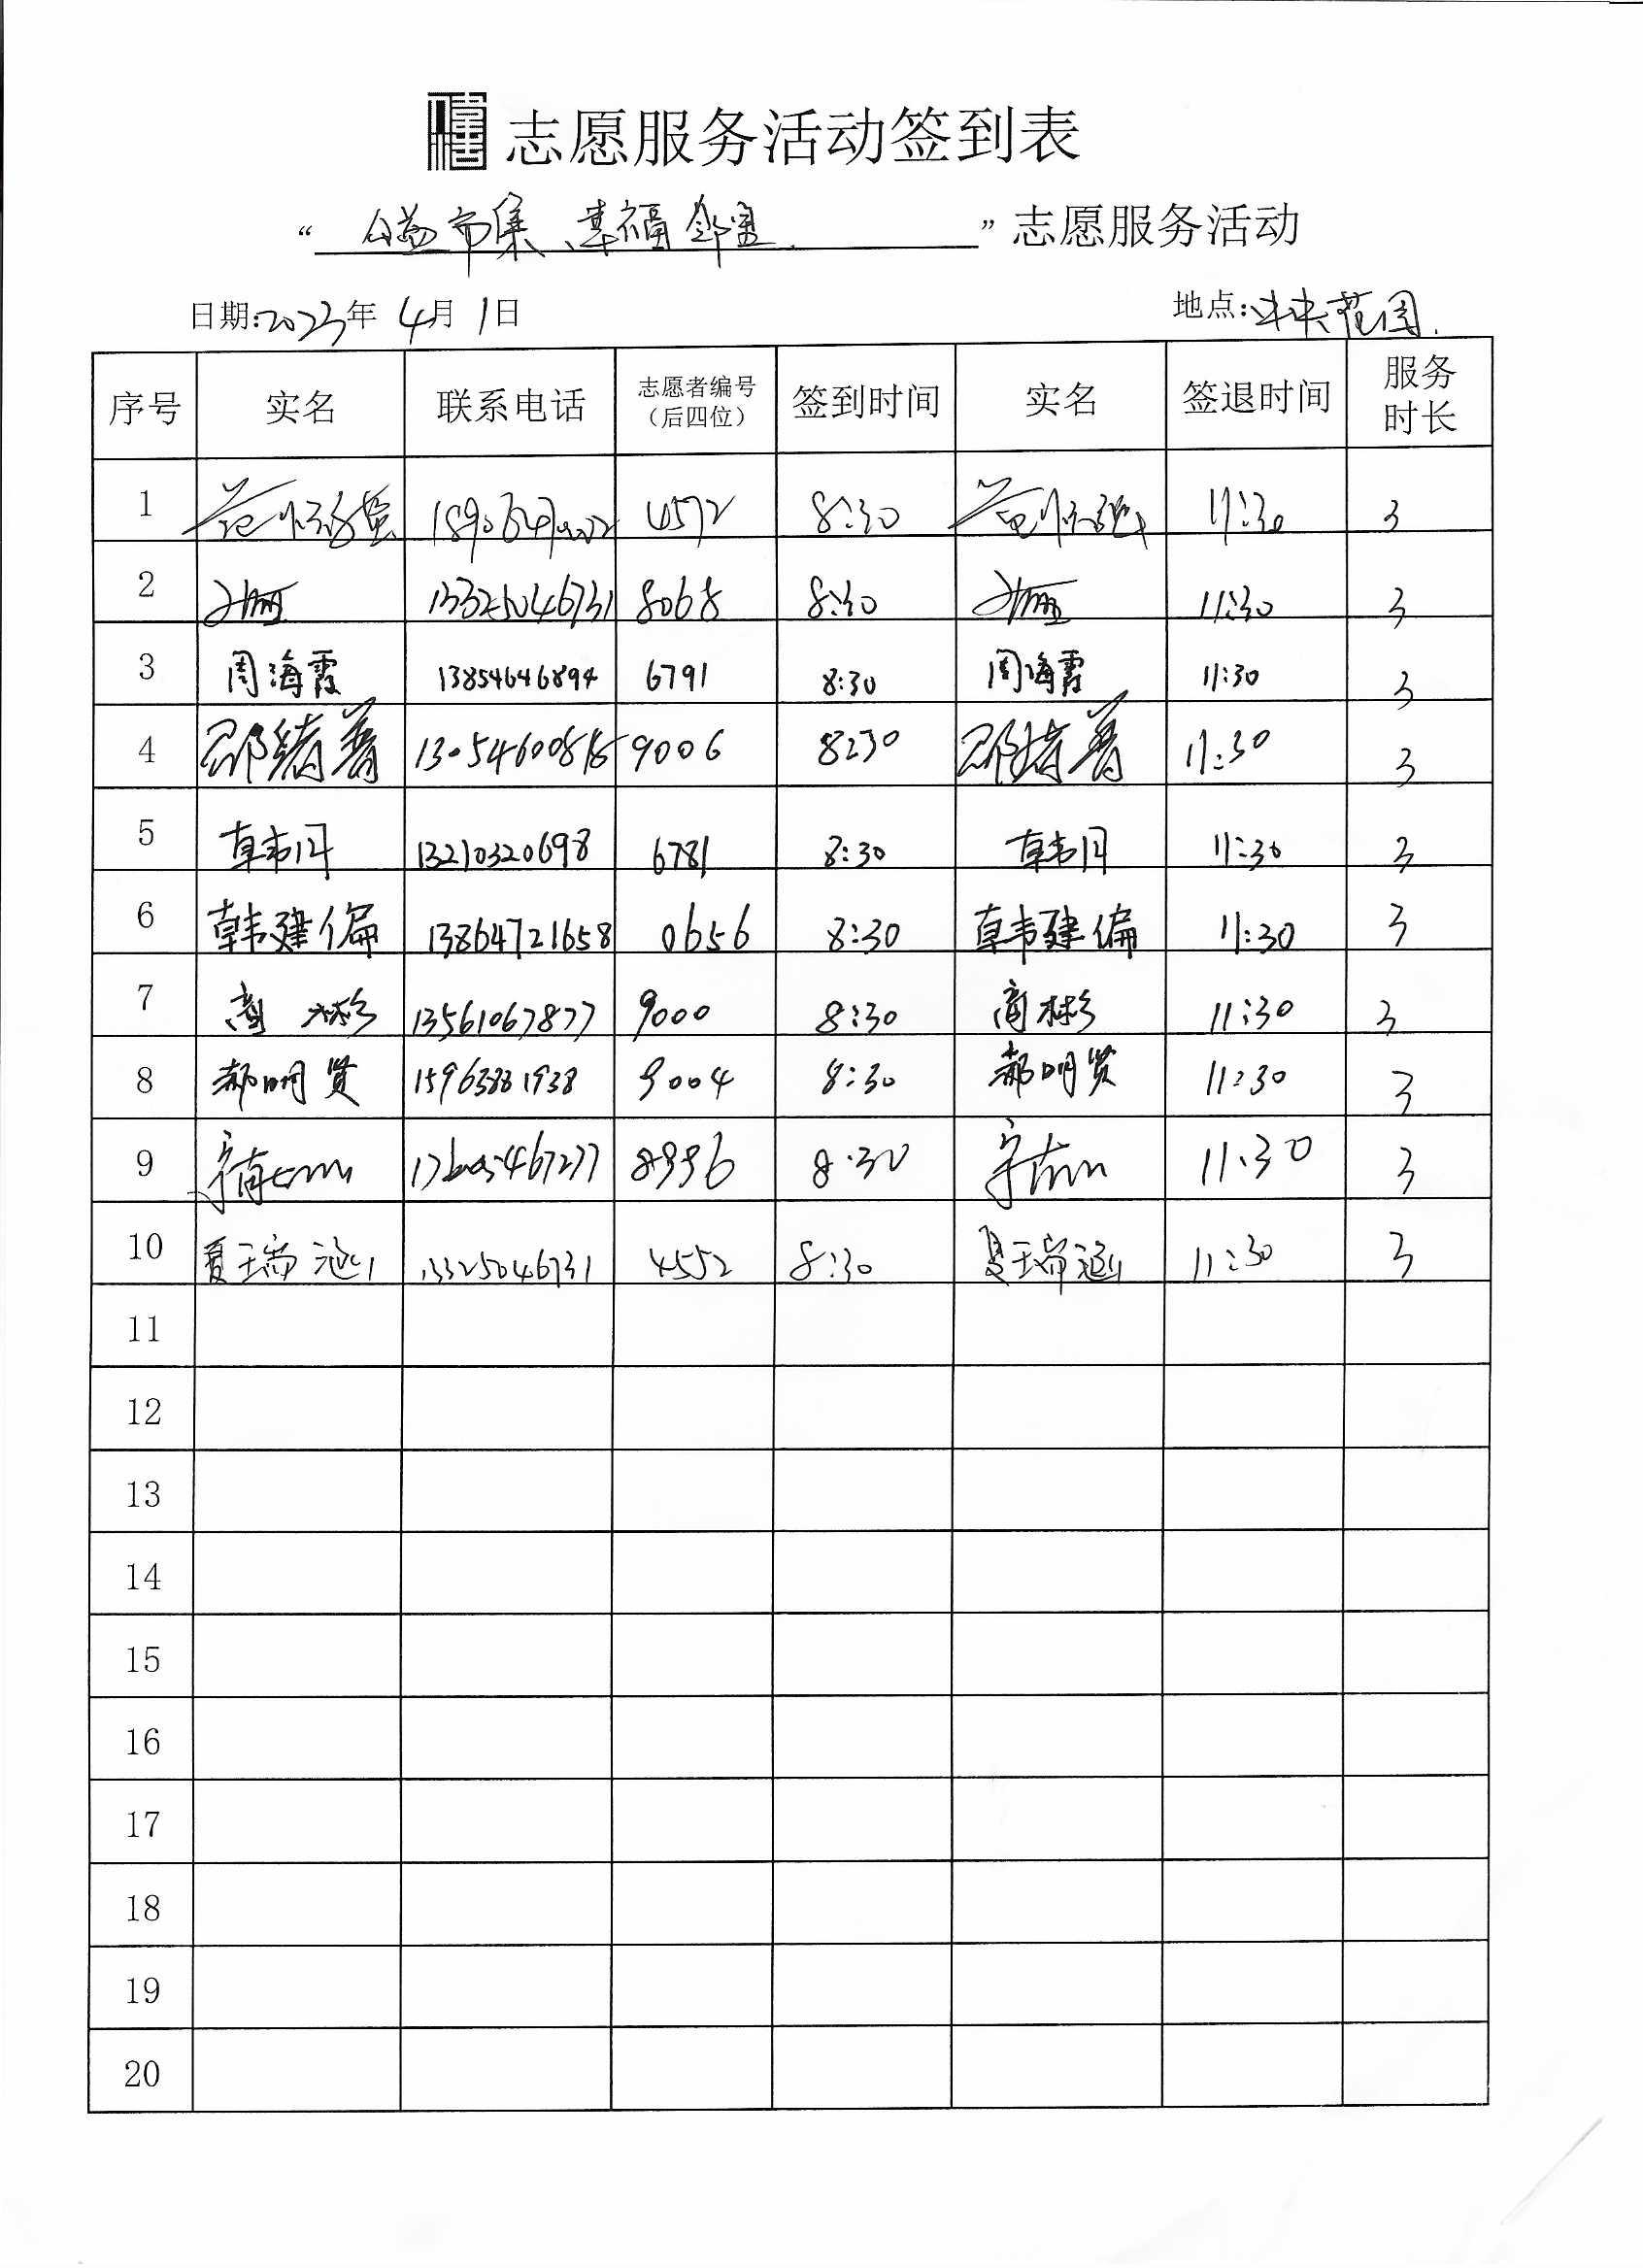 志愿服务活动签到表
“公益市集、幸福邻里”志愿服务活动
日期:2023年 4月 1日 地点:
序号 实名 联系电话 志愿者编号（后四位） 签到时间 实名 签退时间 服务时长
1 4572 8:30 11:30 3
2 13325046731 8068 8:30 11:30 3
3 周海霞 13854646894 6791 8:30 周海霞 11:30 3
4 9006 8:30 11:30 3
5 韩丹 13210320698 6781 8:30 韩丹 11:30 3
6 韩建偏 13864721658 0656 8:30 韩建偏 11:30 3
7 商彬 13561067877 9000 8:30 商彬 11:30 3
8 郝明贤 15963881938 9004 8:30 郝明贤 11:30 3
9 8996 8:30 11:30 3
10 夏瑞涵 13325046731 4552 8:30 夏瑞涵 11:30 3
11
12
13
14
15
16
17
18
19
20